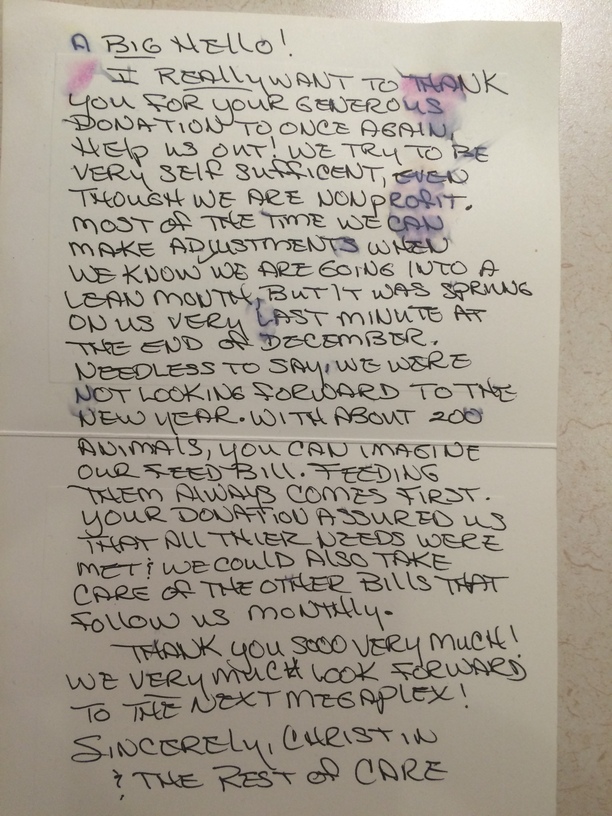 A BIG HELLO!
I REALLY WANT TO THANK
YOU FOR YOUR GENEROUS
DONATION TO ONCE AGAIN,
HELP US OUT! WE TRY TO BE
VERY SELF SUFFICENT, EVEN
THOUGH WE ARE NONPROFIT.
MOST OF THE TIME WE CAN
MAKE ADJUSTMENTS WHEN
WE KNOW WE ARE GOING INTO A
LEAN MONTH, BUT IT WAS SPRUNG
ON US VERY LAST MINUTE AT
THE END OF DECEMBER.
NEEDLESS TO SAY, WE WERE
NOT LOOKING FORWARD TO THE
NEW YEAR. WITH ABOUT 200
ANIMALS, YOU CAN IMAGINE
OUR FEED BILL. FEEDING
THEM ALWAYS COMES FIRST.
YOUR DONATION ASSURED US
THAT ALL THIER NEEDS WERE
MET & WE COULD ALSO TAKE
CARE OF THE OTHER BILLS THAT
FOLLOW US MONTHLY.
THANK YOU SOOO VERY MUCH!
WE VERY MUCH LOOK FORWARD
TO THE NEXT MEGAPLEX!
SINCERELY, CHRISTIN
& THE REST OF CARE